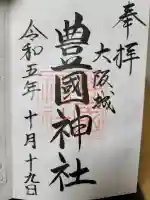 奉拝
大阪城
豊國神社
令和五年
十月十九日